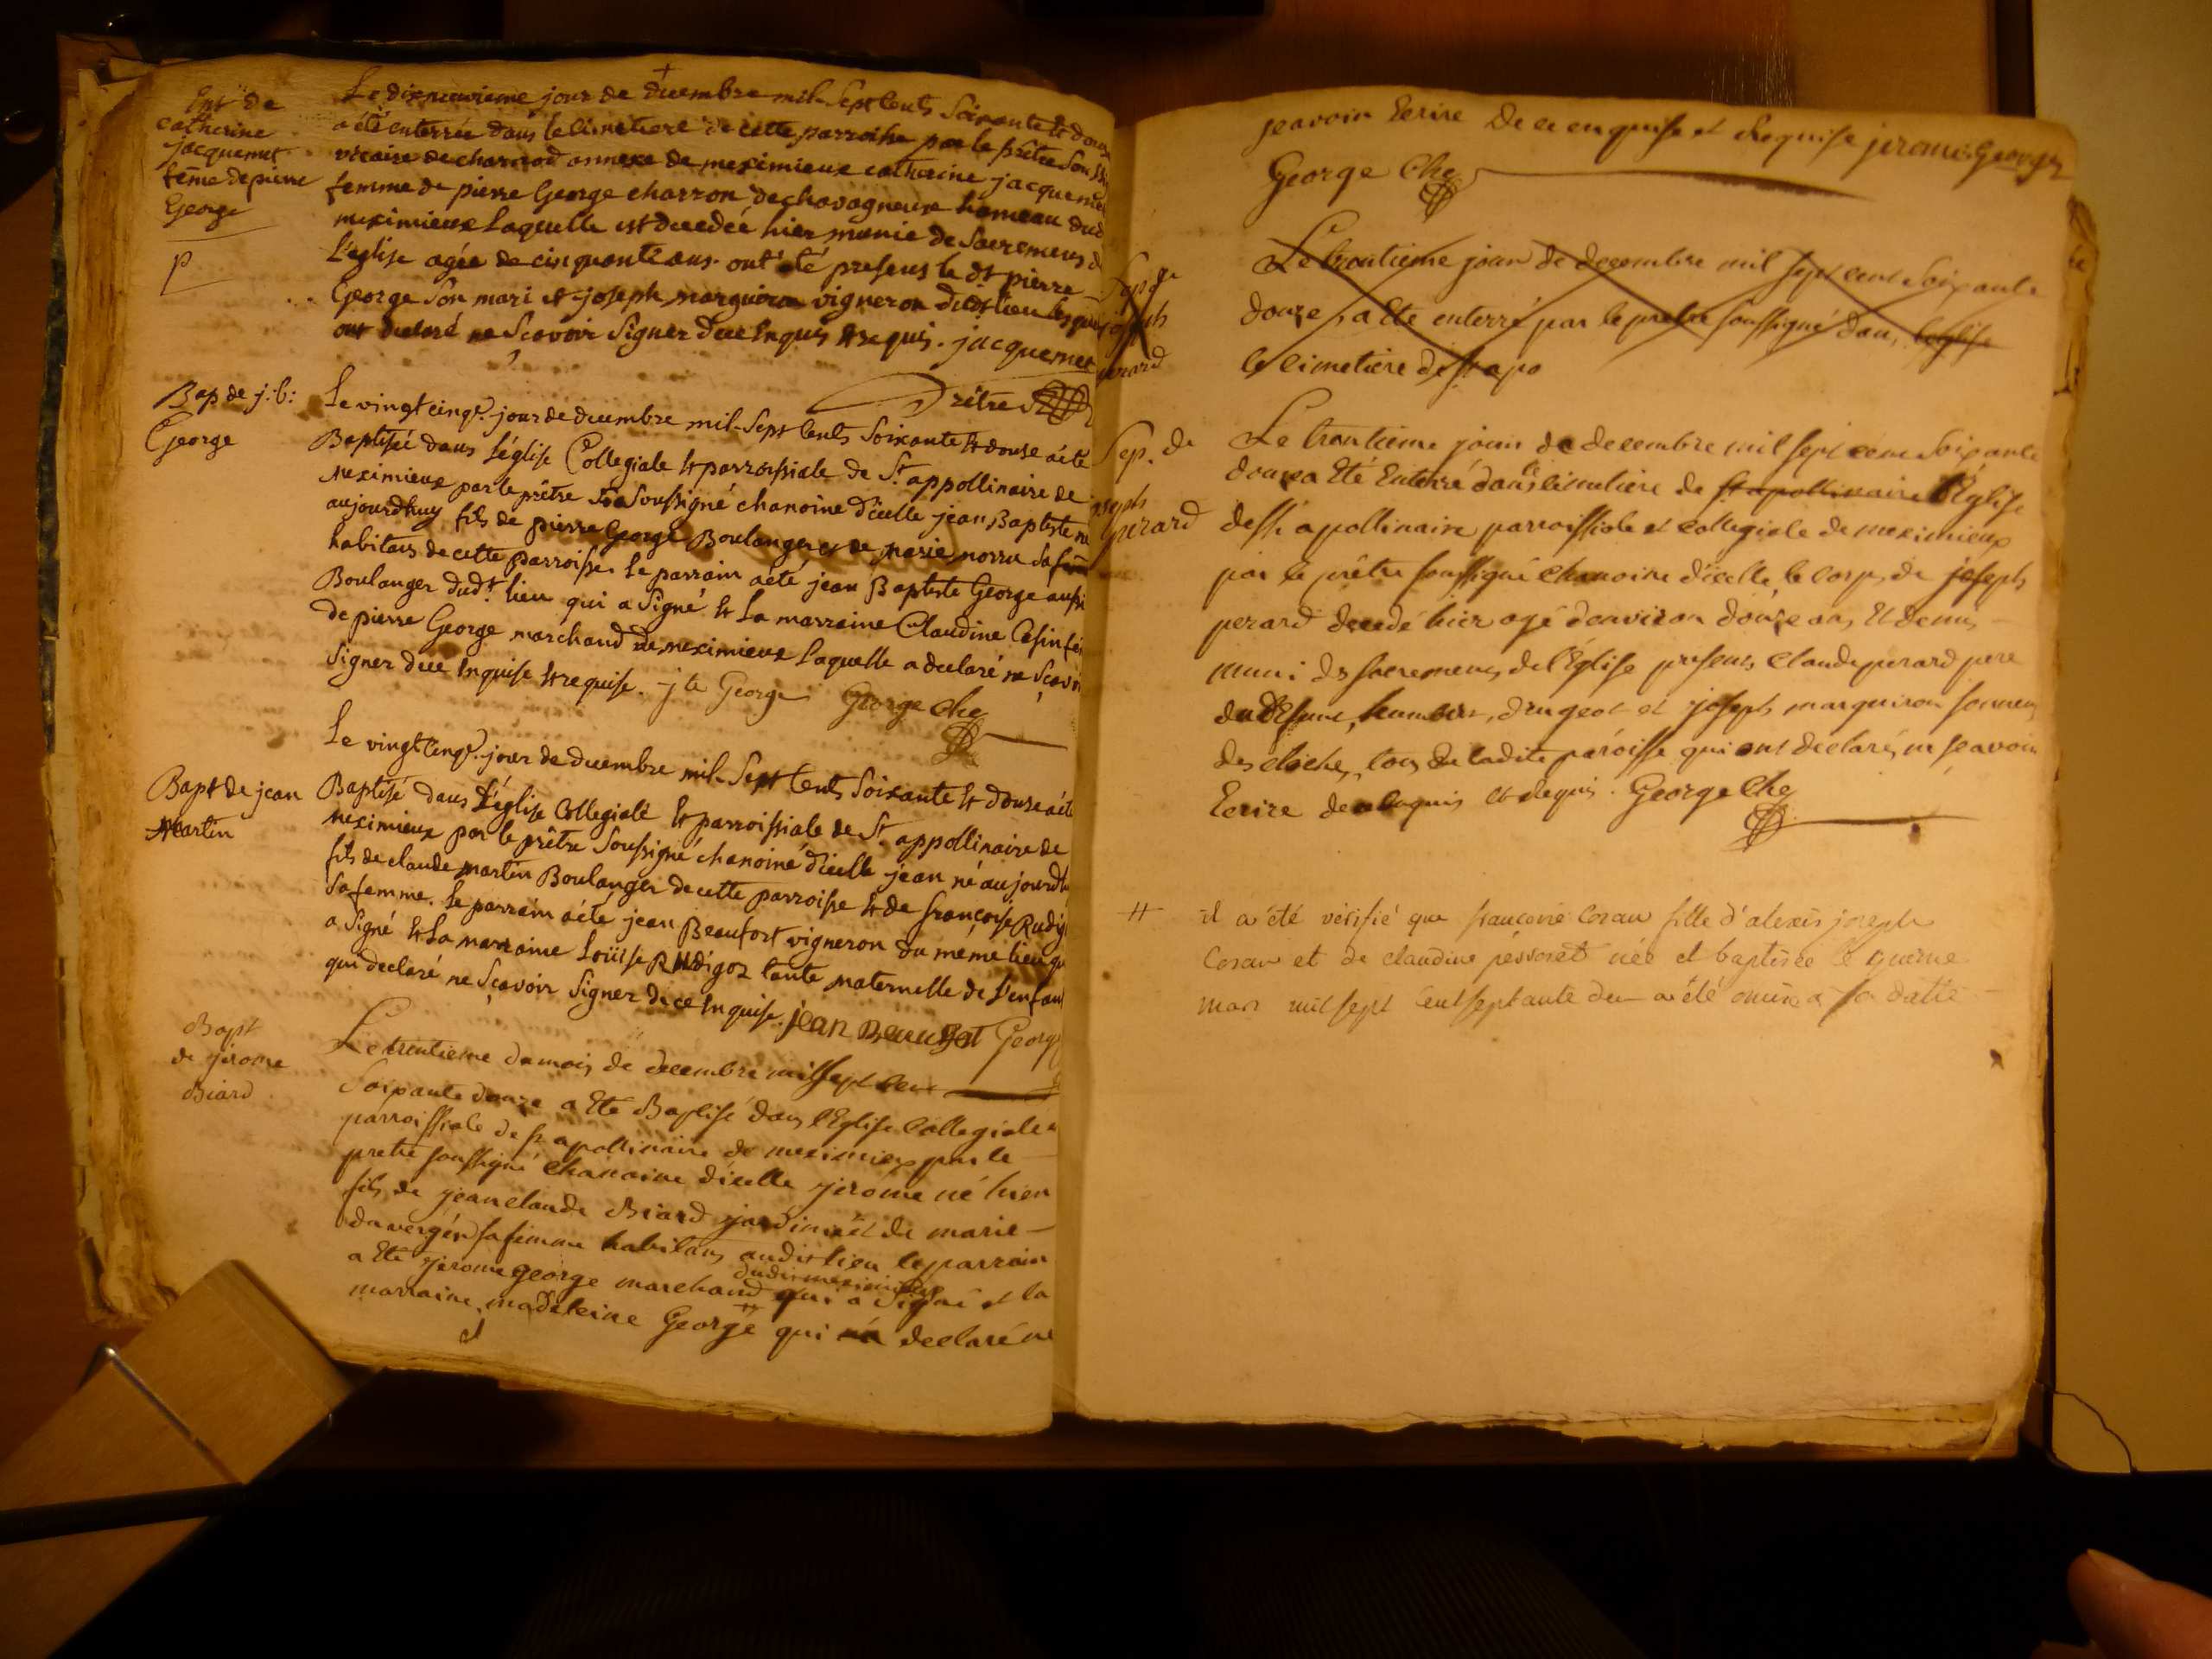 Ent de
catherine
jacquemet
feme de pierre
George
P
Le dixneuvieme jour de decembre mil Sept Cents Soixante et douze
a été enterrée dans le cimetiere de cette parroisse par le prêtre Soussi
vicaire de charnod annexe de meximieux catherine jacquemet
femme de pierre George charron de chavagneux hameau dud
meximieux Laquelle est decedée hier munie de Sacremens de
L'église agée de cinquante ans. ont été presens le dt pierre
George Son mari et joseph marguiron vigneron dudt lieu lesquels
ont declaré ne Scavoir Signer de ce Enquis et requis. jacquemet
Prêtre
Bap de j: b:
George
Le vingt cinqe. jour de decembre mil Sept Cents Soixante et douze a été
Baptisé dans L'église Collegiale et parroissiale de St. appollinaire de
meximieux par le prêtre Soussigné chanoine d'icelle jean Baptiste né
aujourdhuy fils de pierre George Boulanger et de marie morru Sa fem
habitans de cette parroisse. Le parrain a été jean Baptiste George aussi
Boulanger dudt. lieu qui a Signé et La marraine Claudine
de pierre George marchand de meximieux Laquelle a declaré ne Scavoi
Signer de ce Enquise et requise. j te George George Che
Bapt de jean
Martin
Le vingt cinqe. jour de decembre mil Sept Cents Soixante et douze a été
Baptisé dans L'église Collegiale et parroissiale de St. appollinaire de
meximieux par le prêtre Soussigné chanoine d'icelle jean né aujourdh
fils de claude martin Boulanger de cette parroisse et de françoise Rudig
Sa femme. Le parrain a été jean Beaufort vigneron du même lieu qu
a Signé et La marraine Loüise Rudigoz tante maternelle de L'enfant
qui declaré ne Sçavoir Signer de ce Enquise. jean George
Bapt
de jerome
Biard
Le trentieme du mois de decembre mil sept cent
Soixante douze a Eté Baptisé dans l'Eglise Collegiale
parroissiale de st apollinaire de meximieux par le
pretre soussigné Chanoine d'icelle jerôme né hier
fils de jean claude Biard et de marie
duverger sa femme habitans audit lieu le parrain
a Eté jerome george marchand dudit meximieux qui a Signé et la
marraine madeleine George qui declaré ne
scavoir Ecrire de ce enquise et Requise jerome George
George Che
Le trentieme jour de decembre mil sept cent Soixante
douze a Ete enterré par le pretre soussigné dans l'eglise
le cimetiere de st apo
Sep. de
joseph
perard
Le trentieme jour de decembre mil sept cent Soixante
douze a Eté Enterré dans le cimetiere de st apollinaire l'Eglise
de st apollinaire parroissiale et collegiale de meximieux
par le prêtre soussigné chanoine d'icelle le corps de joseph
perard decedé hier agé d'environ douze ans et demis
muni des sacremens de l'Eglise presens Claude perard pere
du defunt, humbert, drugeot et joseph marguiron sonneur
des cloches, tous de ladite paroisse qui ont declarés ne scavoir
Ecrire de ce Enquis et Requis. George Che
# il a été verifié que françoise Coran fille d'alexis joseph
Coran et de claudine née et baptisée le quinze
mars mil sept cent septante deux a été omise a sa datte